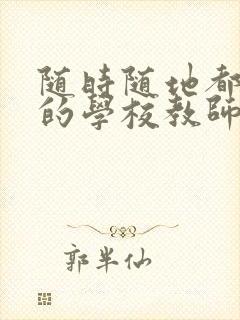 随時随地都
的學校教師
郭半仙